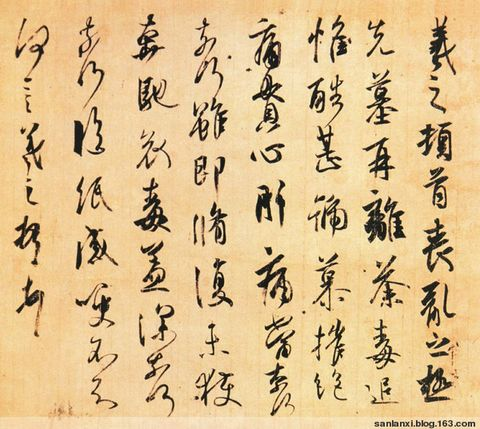 羲之頓首喪亂之極
先墓再離荼毒追
惟酷甚號慕摧絕
痛貫心肝痛當奈何
奈何雖即脩復未獲
奔馳哀毒益深奈何
奈何臨紙感哽不知
何言羲之頓首頓首
sanlanxi.blog.163.com